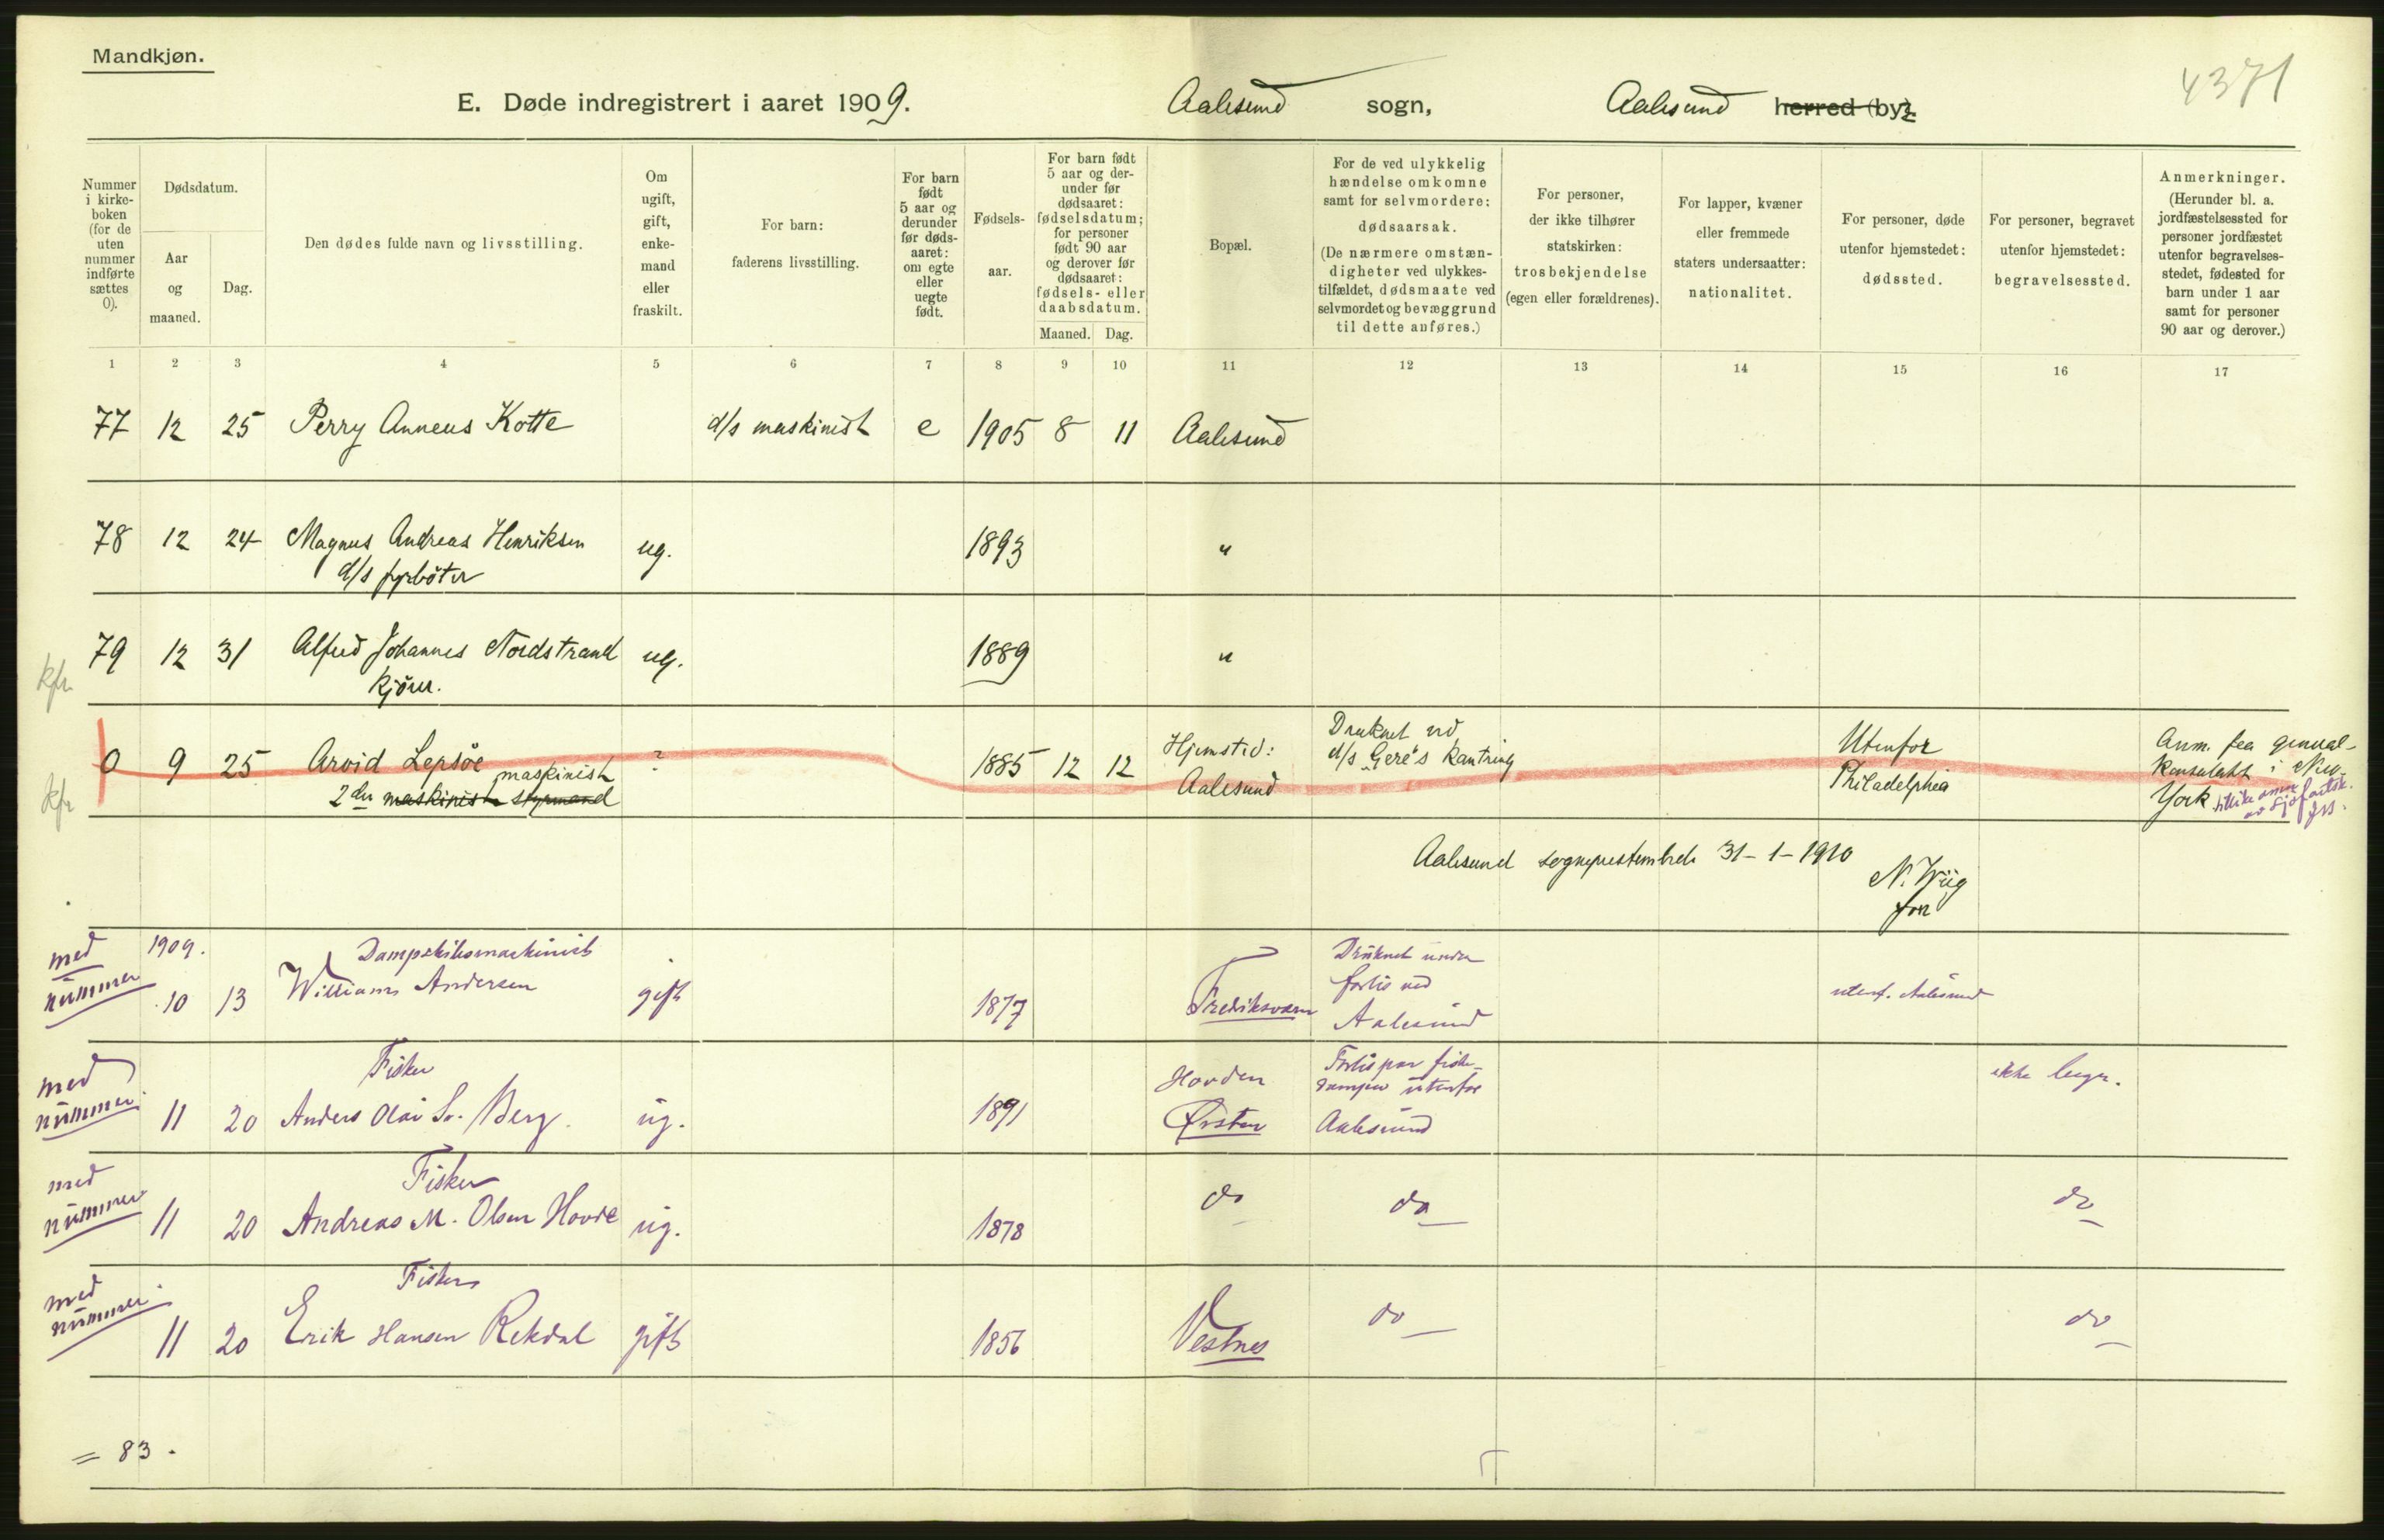 Mandkjøn.
4371
E. Døde indregistrert i aaret 1909. Aalesund sogn, Aalesund herred (by).
Nummer i kirkeboken (for de uten nummer indførte sættes 0).
Dødsdatum.
Aar og maaned.
Dag.
Den dødes fulde navn og livsstilling.
Om ugift, gift, enkemand eller fraskilt.
For barn: faderens livsstilling.
For barn født 5 aar og derunder før dødsaaret: om egte eller uegte født.
Fødselsaar.
For barn født 5 aar og derunder før dødsaaret: fødselsdatum; for personer født 90 aar og derover før dødsaaret: fødsels- eller daabsdatum.
Maaned. Dag.
Bopæl.
For de ved ulykkelig hændelse omkomne samt for selvmordere: dødsaarsak. (De nærmere omstændigheter ved ulykkestilfældet, dødsmaate ved selvmordet og bevæggrund til dette anføres.)
For personer, der ikke tilhører statskirken: trosbekjendelse (egen eller forældrenes).
For lapper, kvæner eller fremmede staters undersaatter: nationalitet.
For personer, døde utenfor hjemstedet: dødssted.
For personer, begravet utenfor hjemstedet: begravelsessted.
Anmerkninger. (Herunder bl. a. jordfæstelsessted for personer jordfæstet utenfor begravelsesstedet, fødested for barn under 1 aar samt for personer 90 aar og derover.)
1 2 3 4 5 6 7 8 9 10 11 12 13 14 15 16 17
77 12 25 Perry Anneus Kotte d/s maskinist e 1905 8 11 Aalesund
78 12 24 Magnus Andreas Henriksen ug. 1893 "
d/s fyrbøter
kfr. 79 12 31 Alfred Johannes Nordstrand ug. 1889 "
kjører.
kfr 0 9 25 Arvid Lepsøe ? 1885 12 12 Hjemsted: Aalesund Druknet ved d/s "Gere"s kantring Utenfor Philadelphia Anm. fra generalkonsulatet i New York
2den maskinist styrmand maskinist
Aalesund sogneprestembede 31-1-1910
N. Wiig
fon
med nummer 1909. 10 13 Dampskibsmaskinist
Williams Andersen gift 1877 Fredriksværn Druknet under forlis ved Aalesund utenf. Aalesund
med nummer. 11 20 Fisker
Anders Olai S. Berg. ug. 1891 Hovden Ørsten Forlis par fiskedamper utenfor Aalesund ikke begr.
med nummer 11 20 Fisker
Andreas M. Olsen Hovde ug. 1878 do do do
med nummer. 11 20 Fisker
Erik Hansen Rekdal gift 1856 Vestnes do do
= 83.